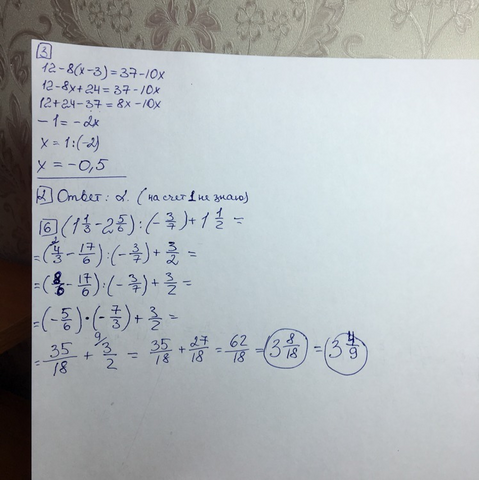 3
12-8(x-3)=37-10x
12-8x+24=37-10x
12+24-37=8x-10x
-1=-2x
x=1:(-2)
x=-0,5
2 Ответ: 2. (насчет 1 не знаю)
6 (1 1/3 - 2 5/6):(-3/7)+1 1/2 =
=(4/3 - 17/6):(-3/7)+3/2 =
=(8/6 - 17/6):(-3/7)+3/2 =
=(-5/6)·(-7/3)+3/2 =
=35/18 + 9/ 3/2 = 35/18 + 27/18 = 62/18 = 3 8/18 = 3 4/9